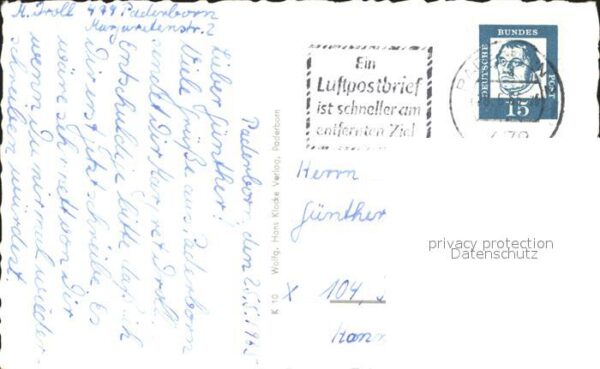 K. Droll 479 Paderborn
Margaretenstr. 2
Paderborn, den 25.5.1965
Lieber Günther!
Viele Grüße aus Paderborn
sendet Dir Margret Droll.
Entschuldige bitte daß ich
Dir erst jetzt schreibe. Es
wäre sehr nett von Dir
wenn Du mir mal wieder
schreiben würdest
K 10 Wolfg. Hans Klocke Verlag, Paderborn
Ein
Luftpostbrief
ist schneller am
entfernten Ziel
DEUTSCHE
BUNDES
POST
15
479
Herrn
Günther
X 104,
Hann
privacy protection
Datenschutz